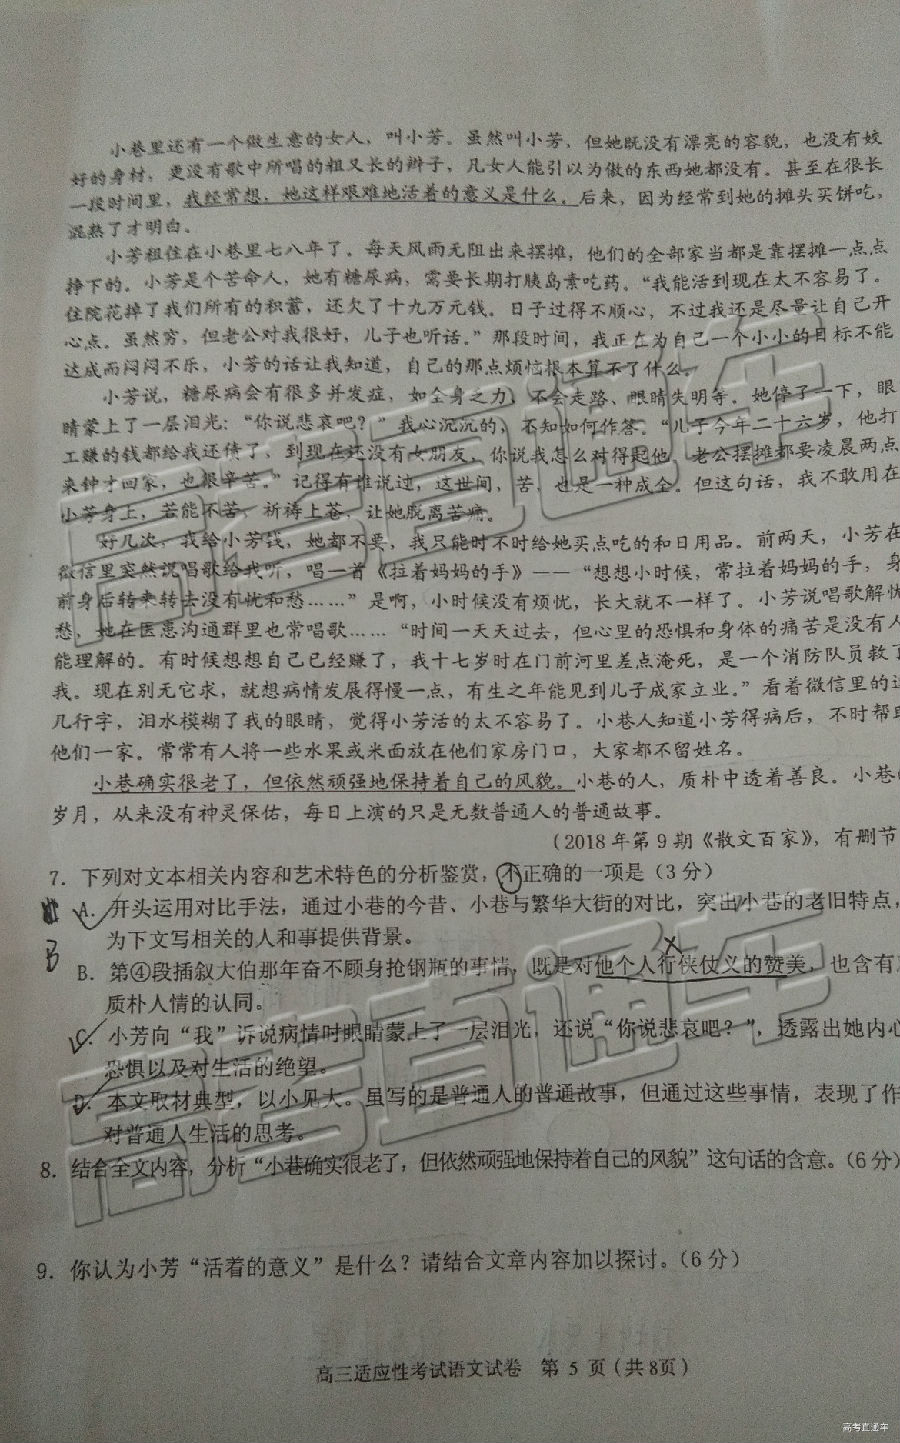 小巷里还有一个做生意的女人，叫小芳。虽然叫小芳，但她既没有漂亮的容貌，也没有姣
好的身材，更没有歌中所唱的粗又长的辫子，凡女人能引以为傲的东西她都没有。甚至在很长
一段时间里，我经常想，她这样艰难地活着的意义是什么。后来，因为经常到她的摊头买饼吃，
混熟了才明白。
小芳租住在小巷里七八年了。每天风雨无阻出来摆摊，他们的全部家当都是靠摆摊一点点
挣下的。小芳是个苦命人，她有糖尿病，需要长期打胰岛素吃药。“我能活到现在太不容易了。
住院花掉了我们所有的积蓄，还欠了十九万元钱。日子过得不顺心，不过我还是尽量让自己开
心点。虽然穷，但老公对我很好，儿子也听话。”那段时间，我正在为自己一个小小的目标不能
达成而闷闷不乐，小芳的话让我知道，自己的那点烦恼根本算不了什么。
小芳说，糖尿病会有很多并发症，如全身乏力、不会走路、眼睛失明等。她停了一下，眼
睛蒙上了一层泪光：“你说悲哀吧？”我心沉沉的，不知如何作答。“儿子今年二十六岁，他打
工赚的钱都给我还债了，到现在还没有女朋友，你说我怎么对得起他。老公摆摊都要凌晨两点
来钟才回家，也很辛苦。”记得有谁说过，这世间，苦，也是一种成全。但这句话，我不敢用在
小芳身上，若能不苦，祈祷上苍，让她脱离苦痛。
好几次，我给小芳钱，她都不要，我只能时不时给她买点吃的和日用品。前两天，小芳在
微信里突然说唱歌给我听，唱一首《拉着妈妈的手》——“想想小时候，常拉着妈妈的手，身
前身后转来转去没有忧和愁……”是啊，小时候没有烦忧，长大就不一样了。小芳说唱歌解忧
愁，她在医患沟通群里也常唱歌……“时间一天天过去，但心里的恐惧和身体的痛苦是没有人
能理解的。有时候想想自己已经赚了，我十七岁时在门前河里差点淹死，是一个消防队员救了
我。现在别无它求，就想病情发展得慢一点，有生之年能见到儿子成家立业。”看着微信里的这
几行字，泪水模糊了我的眼睛，觉得小芳活的太不容易了。小巷人知道小芳得病后，不时帮助
他们一家。常常有人将一些水果或米面放在他们家房门口，大家都不留姓名。
小巷确实很老了，但依然顽强地保持着自己的风貌。小巷的人，质朴中透着善良。小巷的
岁月，从来没有神灵保佑，每日上演的只是无数普通人的普通故事。
（2018年第9期《散文百家》，有删节
7．下列对文本相关内容和艺术特色的分析鉴赏，不正确的一项是（3分）
A．开头运用对比手法，通过小巷的今昔、小巷与繁华大街的对比，突出小巷的老旧特点，
为下文写相关的人和事提供背景。
B
B．第④段插叙大伯那年奋不顾身抢钢瓶的事情，既是对他个人行侠仗义的赞美，也含有
质朴人情的认同。
C．小芳向“我”诉说病情时眼睛蒙上了一层泪光，还说“你说悲哀吧？”，透露出她内心
恐惧以及对生活的绝望。
D．本文取材典型，以小见大。虽写的是普通人的普通故事，但通过这些事情，表现了作
对普通人生活的思考。
8．结合全文内容，分析“小巷确实很老了，但依然顽强地保持着自己的风貌”这句话的含意。（6分）
9．你认为小芳“活着的意义”是什么？请结合文章内容加以探讨。（6分）
高三适应性考试语文试卷 第5页（共8页）
高考直通车
高考直通车
高考直通车